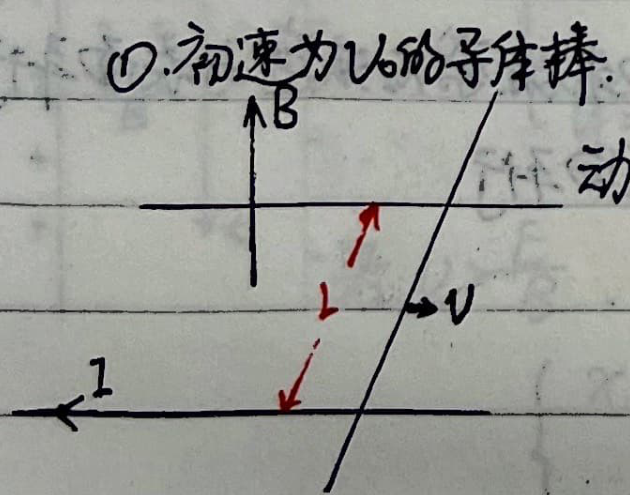 ①.初速为V₀的导体棒.
B
动
L
v
I